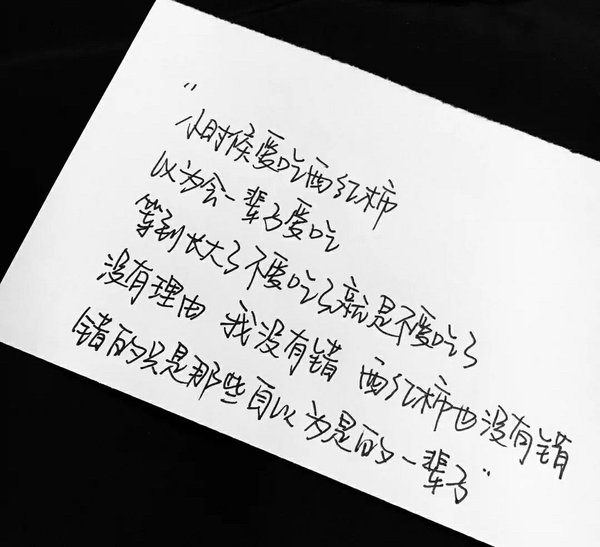 “
小时候爱吃西红柿
以为会一辈子爱吃
等到长大了不爱吃了就是不爱吃了
没有理由 我没有错 西红柿也没有错
错的只是那些自以为是的一辈子”